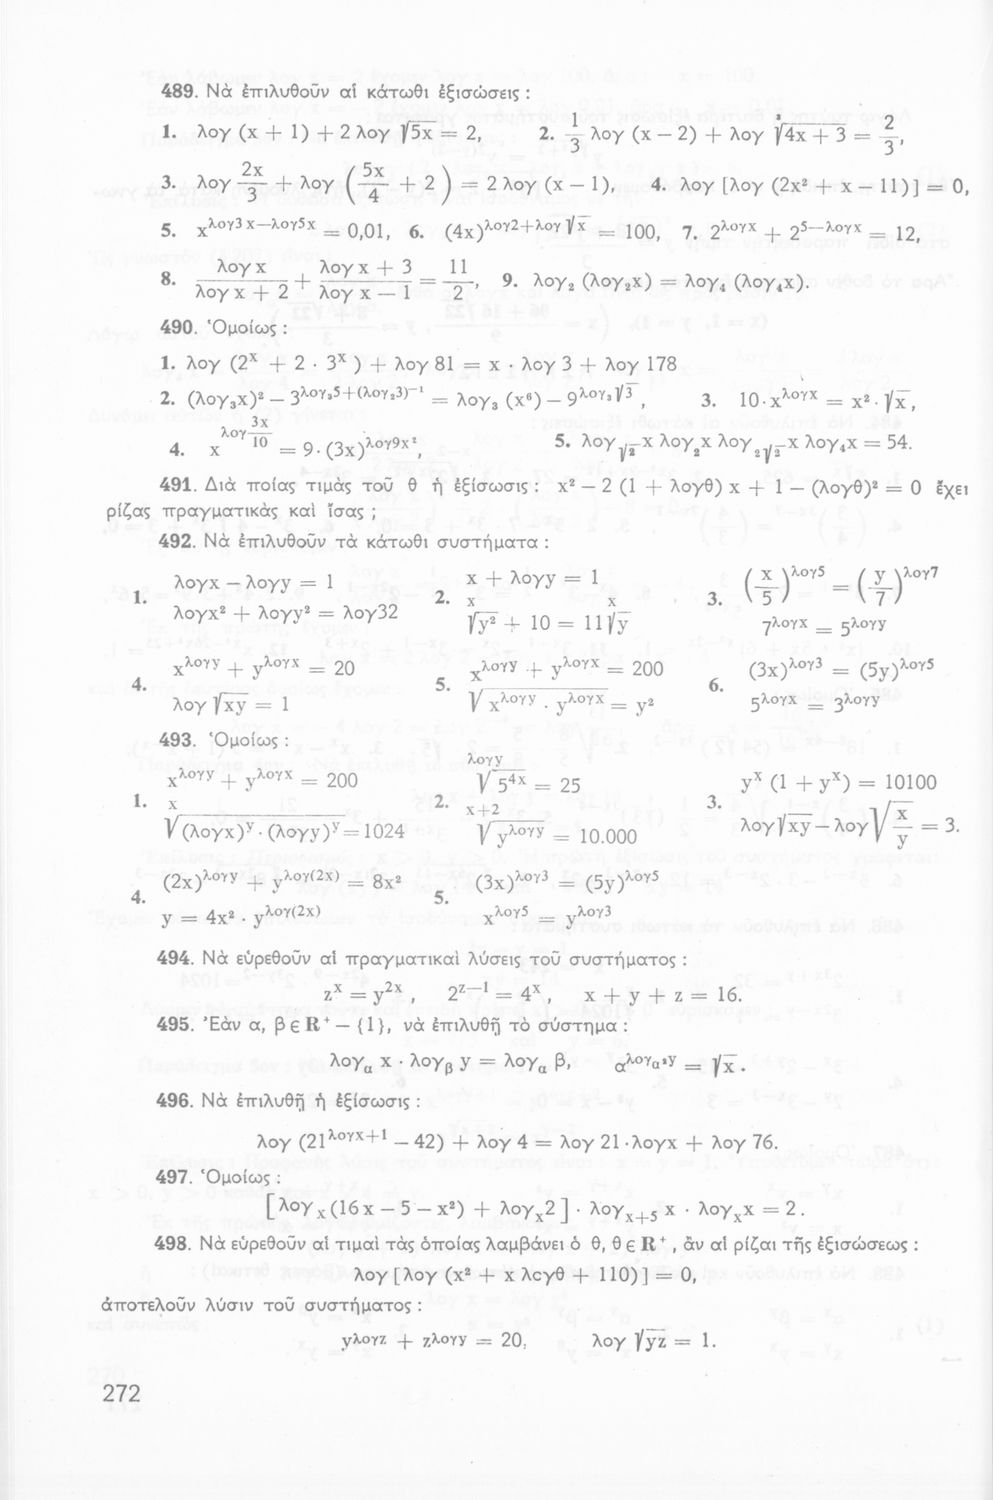 489. Νὰ ἐπιλυθοῦν αἱ κάτωθι ἐξισώσεις :
1. λογ (x + 1) + 2 λογ √5x = 2, 2. 1/3 λογ (x — 2) + λογ ³√4x + 3 = 2/3,
3. λογ 2x/3 + λογ ( 5x/4 + 2 ) = 2 λογ (x — 1), 4. λογ [λογ (2x² + x — 11)] = 0,
5. x^λογ3x—λογ5x = 0,01, 6. (4x)^λογ2+λογ√x = 100, 7. 2^λογx + 2^5—λογx = 12,
8. λογ x/λογ x + 2 + λογ x + 3/λογ x — 1 = 11/2, 9. λογ₂ (λογ₂x) = λογ₄ (λογ₄x).
490. Ὁμοίως :
1. λογ (2^x + 2 · 3^x ) + λογ 81 = x · λογ 3 + λογ 178
2. (λογ₃x)² — 3^λογ₃5+(λογ₂3)^—1 = λογ₃ (x⁶) — 9^λογ₃√3 , 3. 10·x^λογx = x²·√x ,
4. x^λογ 3x/10 = 9·(3x)^λογ9x² , 5. λογ_√2 x λογ₂x λογ_2√2 x λογ₄x = 54.
491. Διὰ ποίας τιμὰς τοῦ θ ἡ ἐξίσωσις : x² — 2 (1 + λογθ) x + 1 — (λογθ)² = 0 ἔχει
ρίζας πραγματικὰς καὶ ἴσας ;
492. Νὰ ἐπιλυθοῦν τὰ κάτωθι συστήματα :
1. λογx — λογy = 1
λογx² + λογy² = λογ32
2. x + λογy = 1
^x√y² + 10 = 11 ^x√y
3. ( x/5 )^λογ5 = ( y/7 )^λογ7
7^λογx = 5^λογy
4. x^λογy + y^λογx = 20
λογ √xy = 1
5. x^λογy + y^λογx = 200
√x^λογy · y^λογx = y²
6. (3x)^λογ3 = (5y)^λογ5
5^λογx = 3^λογy
493. Ὁμοίως :
1. x^λογy + y^λογx = 200
^x√(λογx)^y · (λογy)^y = 1024
2. ^λογy√5^4x = 25
^x+2√y^λογy = 10.000
3. y^x (1 + y^x) = 10100
λογ√xy — λογ√x/y = 3.
4. (2x)^λογy + y^λογ(2x) = 8x²
y = 4x² · y^λογ(2x)
5. (3x)^λογ3 = (5y)^λογ5
x^λογ5 = y^λογ3
494. Νὰ εὑρεθοῦν αἱ πραγματικαὶ λύσεις τοῦ συστήματος :
z^x = y^2x , 2^z—1 = 4^x , x + y + z = 16.
495. Ἐὰν α, β ∈ R⁺ — {1}, νὰ ἐπιλυθῇ τὸ σύστημα :
λογ_α x · λογ_β y = λογ_α β, α^λογ_α²y = √x .
496. Νὰ ἐπιλυθῇ ἡ ἐξίσωσις :
λογ (21^λογx+1 — 42) + λογ 4 = λογ 21 · λογx + λογ 76.
497. Ὁμοίως :
[ λογ_x (16x — 5 — x²) + λογ_x 2 ] · λογ_x+5 x · λογ_x x = 2.
498. Νὰ εὑρεθοῦν αἱ τιμαὶ τὰς ὁποίας λαμβάνει ὁ θ, θ ∈ R⁺, ἂν αἱ ρίζαι τῆς ἐξισώσεως :
λογ [λογ (x² + x λογθ + 110)] = 0,
ἀποτελοῦν λύσιν τοῦ συστήματος :
y^λογz + z^λογy = 20, λογ √yz = 1.
272